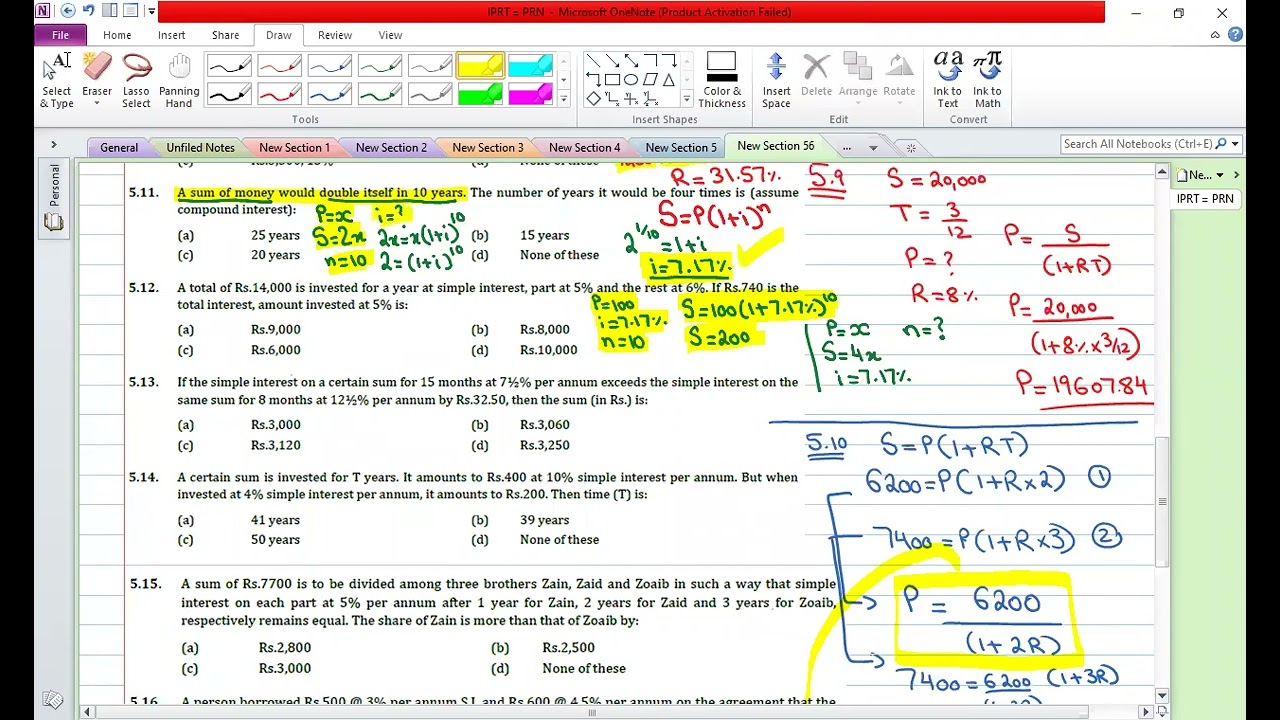 IPRT = PRN - Microsoft OneNote (Product Activation Failed)
File Home Insert Share Draw Review View
Select & Type
Eraser
Lasso Select
Panning Hand
Color & Thickness
Insert Space
Delete
Arrange
Rotate
Ink to Text
Ink to Math
Tools
Insert Shapes
Edit
Convert
General Unfiled Notes New Section 1 New Section 2 New Section 3 New Section 4 New Section 5 New Section 56 ...
Search All Notebooks (Ctrl+E)
Personal
Ne...
IPRT = PRN
R = 31.57%
5.11. A sum of money would double itself in 10 years. The number of years it would be four times is (assume
compound interest):
(a) 25 years (b) 15 years
(c) 20 years (d) None of these
P=x i=?
S=2x 2x=x(1+i)^10
n=10 2=(1+i)^10
S=P(1+i)^n
2^1/10 =1+i
i=7.17%
5.12. A total of Rs.14,000 is invested for a year at simple interest, part at 5% and the rest at 6%. If Rs.740 is the
total interest, amount invested at 5% is:
(a) Rs.9,000 (b) Rs.8,000
(c) Rs.6,000 (d) Rs.10,000
P=100
i=7.17%
n=10
S=100(1+7.17%)^10
S=200
P=x n=?
S=4x
i=7.17%
5.13. If the simple interest on a certain sum for 15 months at 7½% per annum exceeds the simple interest on the
same sum for 8 months at 12½% per annum by Rs.32.50, then the sum (in Rs.) is:
(a) Rs.3,000 (b) Rs.3,060
(c) Rs.3,120 (d) Rs.3,250
5.14. A certain sum is invested for T years. It amounts to Rs.400 at 10% simple interest per annum. But when
invested at 4% simple interest per annum, it amounts to Rs.200. Then time (T) is:
(a) 41 years (b) 39 years
(c) 50 years (d) None of these
5.15. A sum of Rs.7700 is to be divided among three brothers Zain, Zaid and Zoaib in such a way that simple
interest on each part at 5% per annum after 1 year for Zain, 2 years for Zaid and 3 years for Zoaib,
respectively remains equal. The share of Zain is more than that of Zoaib by:
(a) Rs.2,800 (b) Rs.2,500
(c) Rs.3,000 (d) None of these
5.16 A person borrowed Rs.500 @ 3% per annum S.I. and Rs.600 @ 4.5% per annum on the agreement that the
5.9 S=20,000
T = 3/12
P= ?
R=8%
P= S/(1+RT)
P= 20,000/(1+8%x3/12)
P=19607.84
5.10 S=P(1+RT)
6200=P(1+Rx2) ①
7400=P(1+Rx3) ②
P = 6200/(1+2R)
7400=6200 (1+3R)